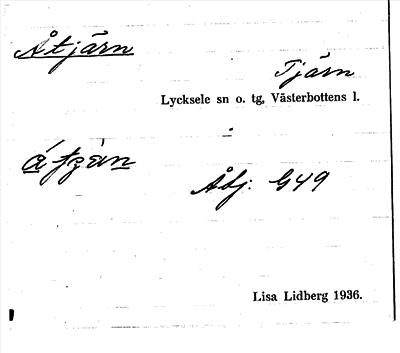 Åtjärn
Tjärn
Lycksele sn o. tg, Västerbottens l.
Åbj. G49
Lisa Lidberg 1936.